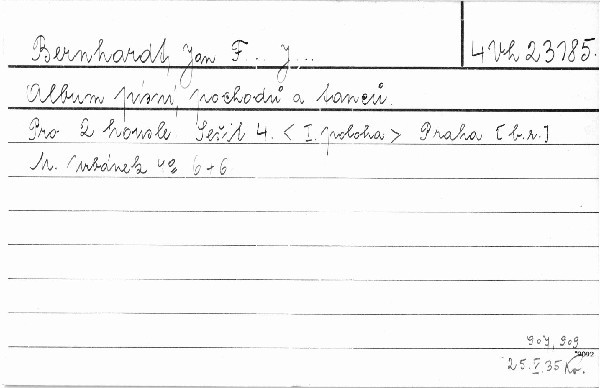 Bernhardt, Jan F... J... 4 Vh 23185.
Album písní, pochodů a tanců.
Pro 2 housle Sešit 4. < I. poloha > Praha [b.r.]
M. Urbánek 4° 6+6
909, 909
25.V.35